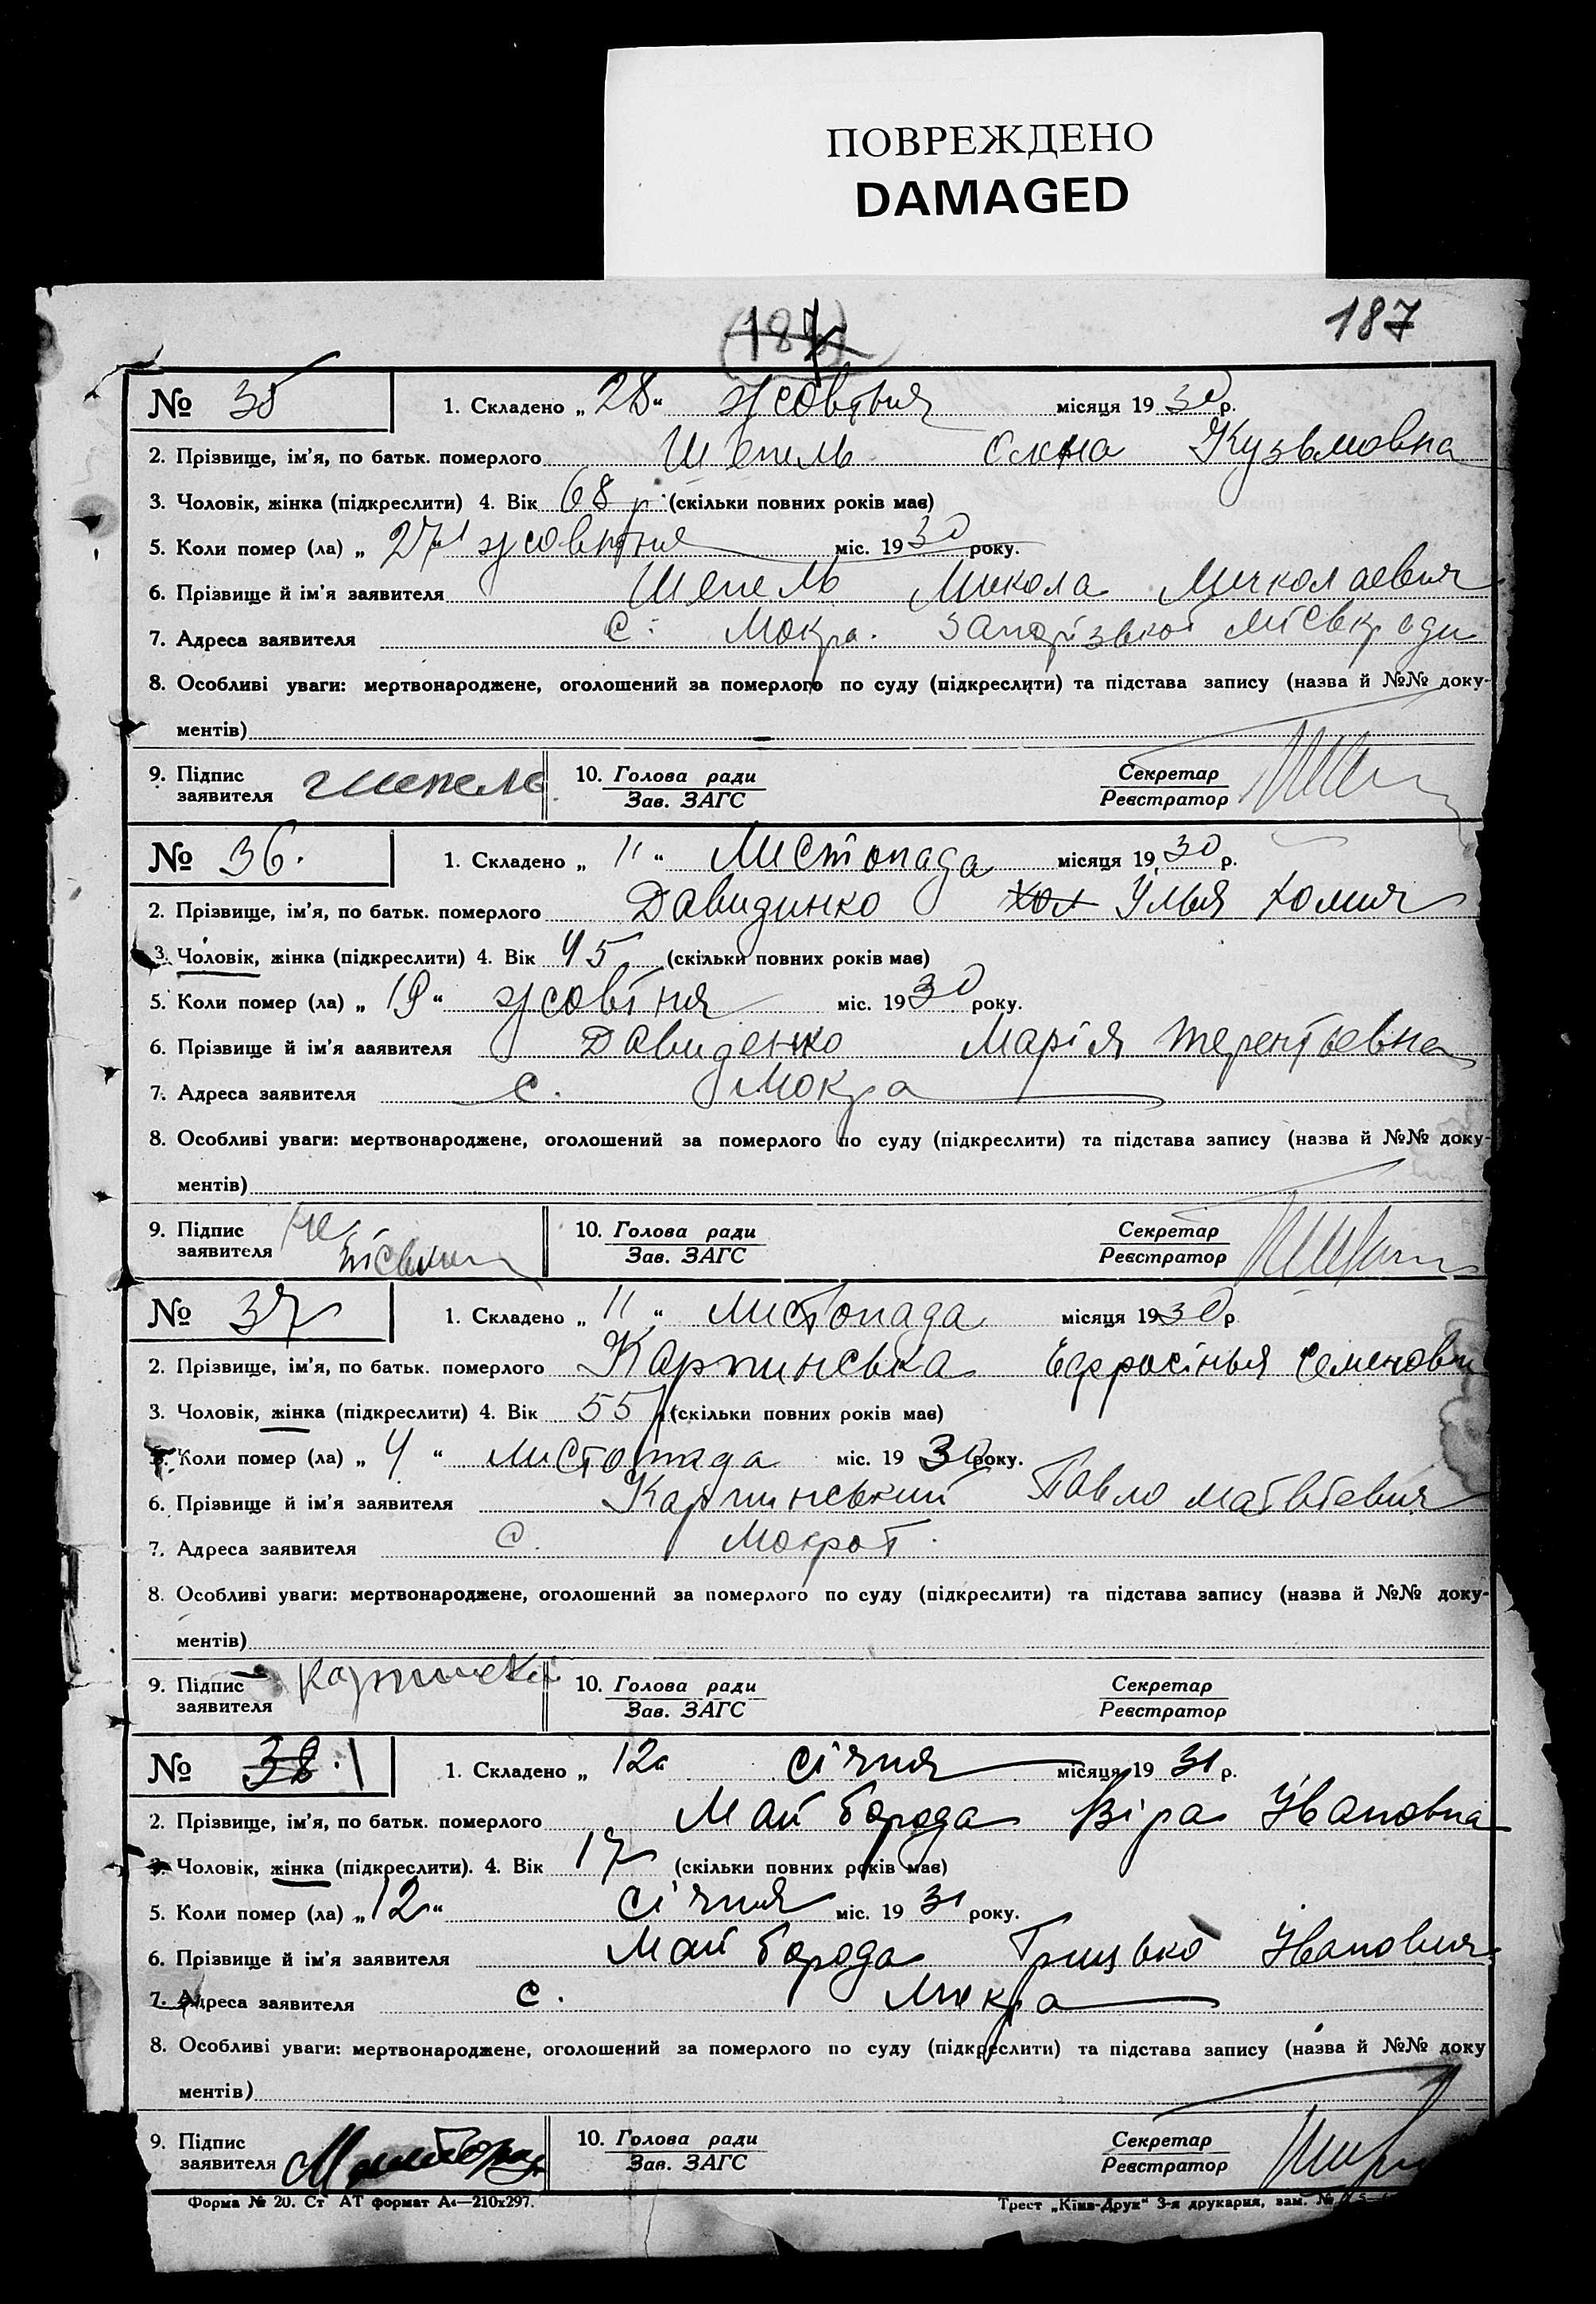 ПОВРЕЖДЕНО
DAMAGED
187
№ 35
1. Складено „ 28 “ жовтня місяця 19 30 р.
2. Прізвище, ім’я, по батьк. померлого Шепель Олена Кузьмовна
3. Чоловік, жінка (підкреслити) 4. Вік 68 р (скільки повних років має)
5. Коли помер (ла) „ 27 “ жовтня міс. 19 30 року.
6. Прізвище й ім’я заявителя Шепель Микола Миколаевич
7. Адреса заявителя С. Мокра. Запорізької міськради
8. Особливі уваги: мертвонароджене, оголошений за померлого по суду (підкреслити) та підстава запису (назва й №№ доку-
ментів)
9. Підпис заявителя Шепель 10. Голова ради Секретар
Зав. ЗАГС Реєстратор
№ 36.
1. Складено „ 11 “ Листопада місяця 19 30 р.
2. Прізвище, ім’я, по батьк. померлого Давидинко Хом Улья Хомич
3. Чоловік, жінка (підкреслити) 4. Вік 45 (скільки повних років має)
5. Коли помер (ла) „ 19 “ жовтня міс. 19 30 року.
6. Прізвище й ім’я заявителя Давиденко Марія Терентьевна
7. Адреса заявителя с. Мокра
8. Особливі уваги: мертвонароджене, оголошений за померлого по суду (підкреслити) та підстава запису (назва й №№ доку-
ментів)
9. Підпис заявителя 10. Голова ради Секретар
Зав. ЗАГС Реєстратор
№ 37
1. Складено „ 11 “ листопада місяця 19 30 р
2. Прізвище, ім’я, по батьк. померлого Карпинська Ефросінья Семеновн
3. Чоловік, жінка (підкреслити) 4. Вік 55 (скільки повних років має)
5. Коли помер (ла) „ 4 “ листопада міс. 19 30 року.
6. Прізвище й ім’я заявителя Карпинський Павло Матвіевич
7. Адреса заявителя С. Мокрої.
8. Особливі уваги: мертвонароджене, оголошений за померлого по суду (підкреслити) та підстава запису (назва й №№ доку-
ментів)
9. Підпис заявителя 10. Голова ради Секретар
Зав. ЗАГС Реєстратор
№ 38. 1
1. Складено „ 12 “ січня місяця 19 31 р.
2. Прізвище, ім’я, по батьк. померлого Майборода Віра Івановна
3. Чоловік, жінка (підкреслити). 4. Вік 17 (скільки повних років має)
5. Коли помер (ла) „ 12 “ січня міс. 19 31 року.
6. Прізвище й ім’я заявителя Майборода Грицько Іванович
7. Адреса заявителя с. Мокра
8. Особливі уваги: мертвонароджене, оголошений за померлого по суду (підкреслити) та підстава запису (назва й №№ доку
ментів)
9. Підпис заявителя Майборода 10. Голова ради Секретар
Зав. ЗАГС Реєстратор
Форма № 20. Ст АТ формат А4—210х297. Трест „Київ-Друк“ 3-я друкарня, зам. №